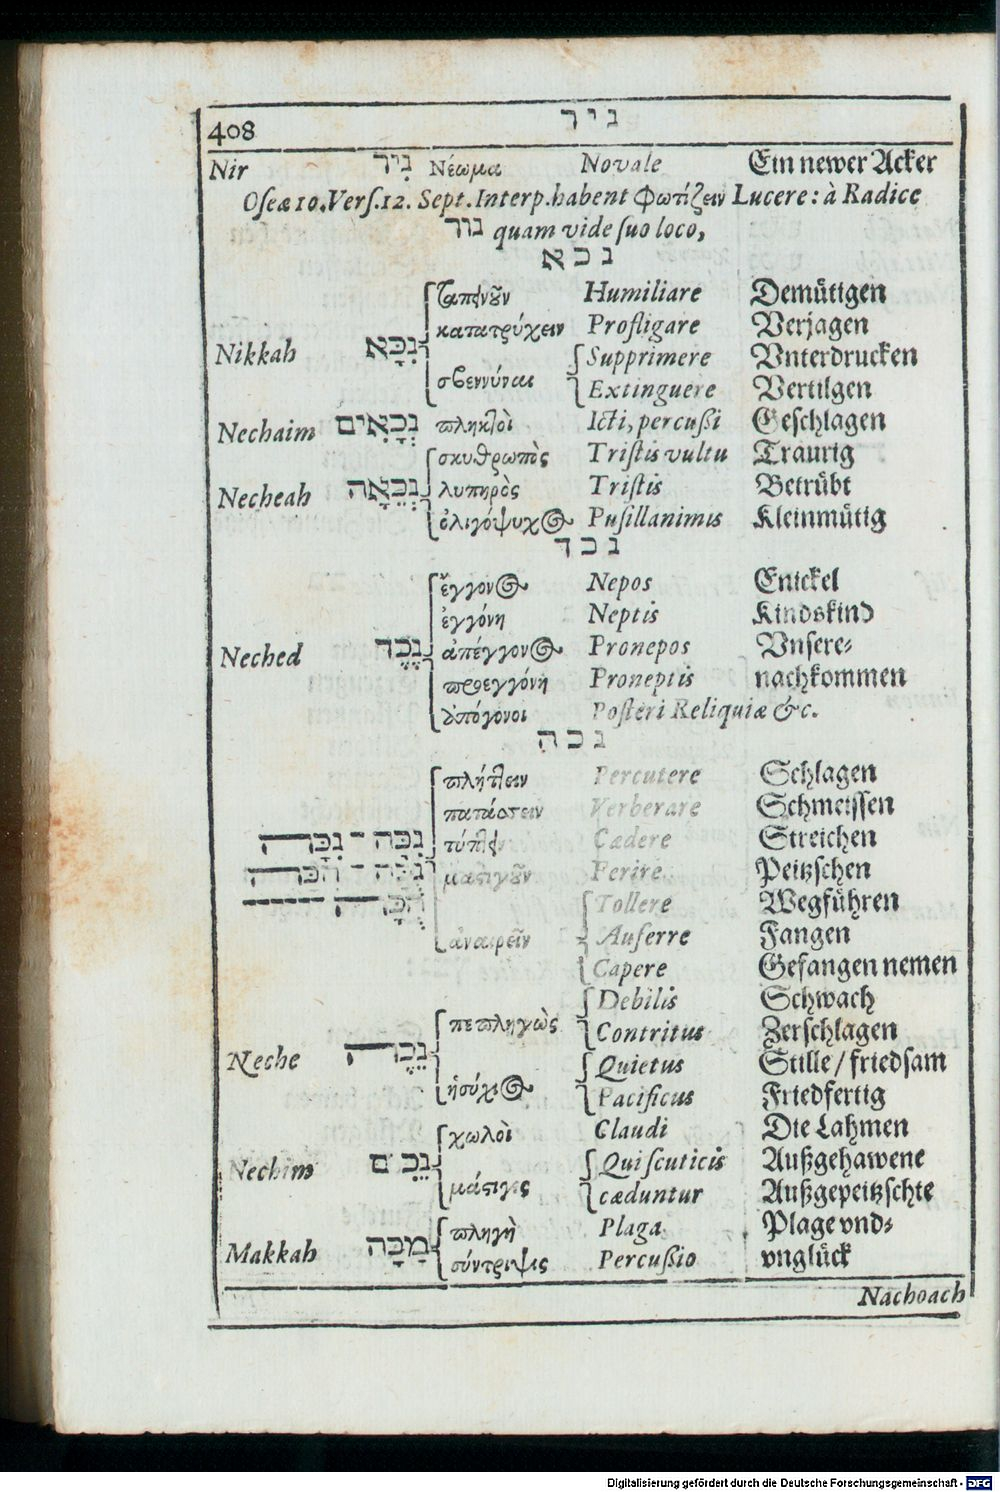 408 ניר
Nir נִיר Νέωμα Novale Ein newer Acker
Oseæ 10. Vers. 12. Sept. Interp. habent Φωτίζειν Lucere: à Radice
נור quam vide suo loco,
נכא
ταπεινοῦν Humiliare Demütigen
καπατρύχειν Profligare Verjagen
Nikkah נִכָּא Supprimere Vnterdrucken
σβεννύναι Extinguere Vertilgen
Nechaim נְכָאִים πληκτοὶ Icti, percußi Geschlagen
σκυθρωπὸς Tristis vultu Traurig
Necheah נְכֵאָה λυπηρὸς Tristis Betrübt
ὀλιγόψυχος Pusillanimis Kleinmütig
נכד
ἔγγονος Nepos Enickel
ἐγγόνη Neptis Kindskind
Neched נֶכֶד ἀπέγγονος Pronepos Vnsere-
προεγγόνη Proneptis nachkommen
ἀπόγονοι Posteri Reliquiæ &c.
נכה
πλήττειν Percutere Schlagen
πατάσσειν Verberare Schmeissen
נִכָּה - נִכָּה τύπτειν Cædere Streichen
הִכָּה μαστιγοῦν Ferire Peitzschen
Tollere Wegführen
ἀναιρεῖν Auferre Fangen
Capere Gefangen nemen
Debilis Schwach
πεπληγὼς Contritus Zerschlagen
Neche נֵכֶה Quietus Stille / friedsam
ἡσύχιος Pacificus Friedfertig
χωλοὶ Claudi Die Lahmen
Nechim נֵכִים Qui scuticis Außgehawene
μάστιγες cæduntur Außgepeitzschte
πληγὴ Plaga Plage vnd-
Makkah מַכָּה σύντριψις Percußio vnglück
Nachoach
Digitalisierung gefördert durch die Deutsche Forschungsgemeinschaft - DFG